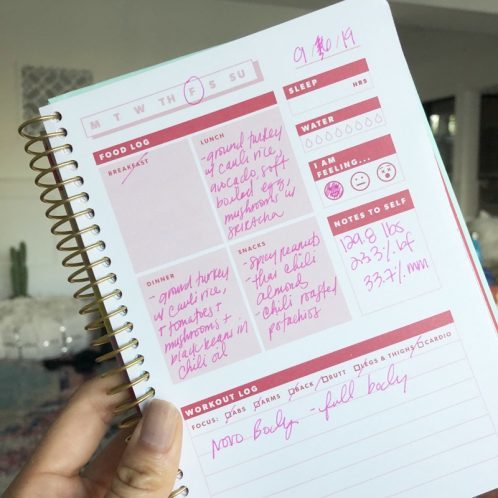 9/6/19
M T W TH F S SU
SLEEP
HRS
FOOD LOG
BREAKFAST
LUNCH
-ground turkey
w/ cauli rice,
avocado, soft
boiled egg,
mushrooms w/
sriracha
WATER
I AM
FEELING...
DINNER
-ground turkey
w/ cauli rice,
+ tomatoes +
mushrooms +
black beans in
chili oil
SNACKS
-spicy peanuts
-thai chili
almond
-chili roasted
pistachios
NOTES TO SELF
129.8 lbs
23.3% bf
33.7% mm
WORKOUT LOG
FOCUS: ABS ARMS BACK BUTT LEGS & THIGHS CARDIO
Novo Body - full body